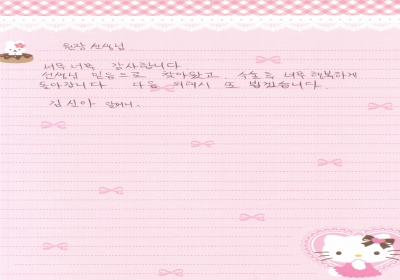 원장 선생님
너무 너무 감사합니다
선생님 믿음으로 찾아왔고, 수술 후 너무 행복하게
돌아갑니다 다음 외래시 또 뵙겠습니다.
김신아 할머니.